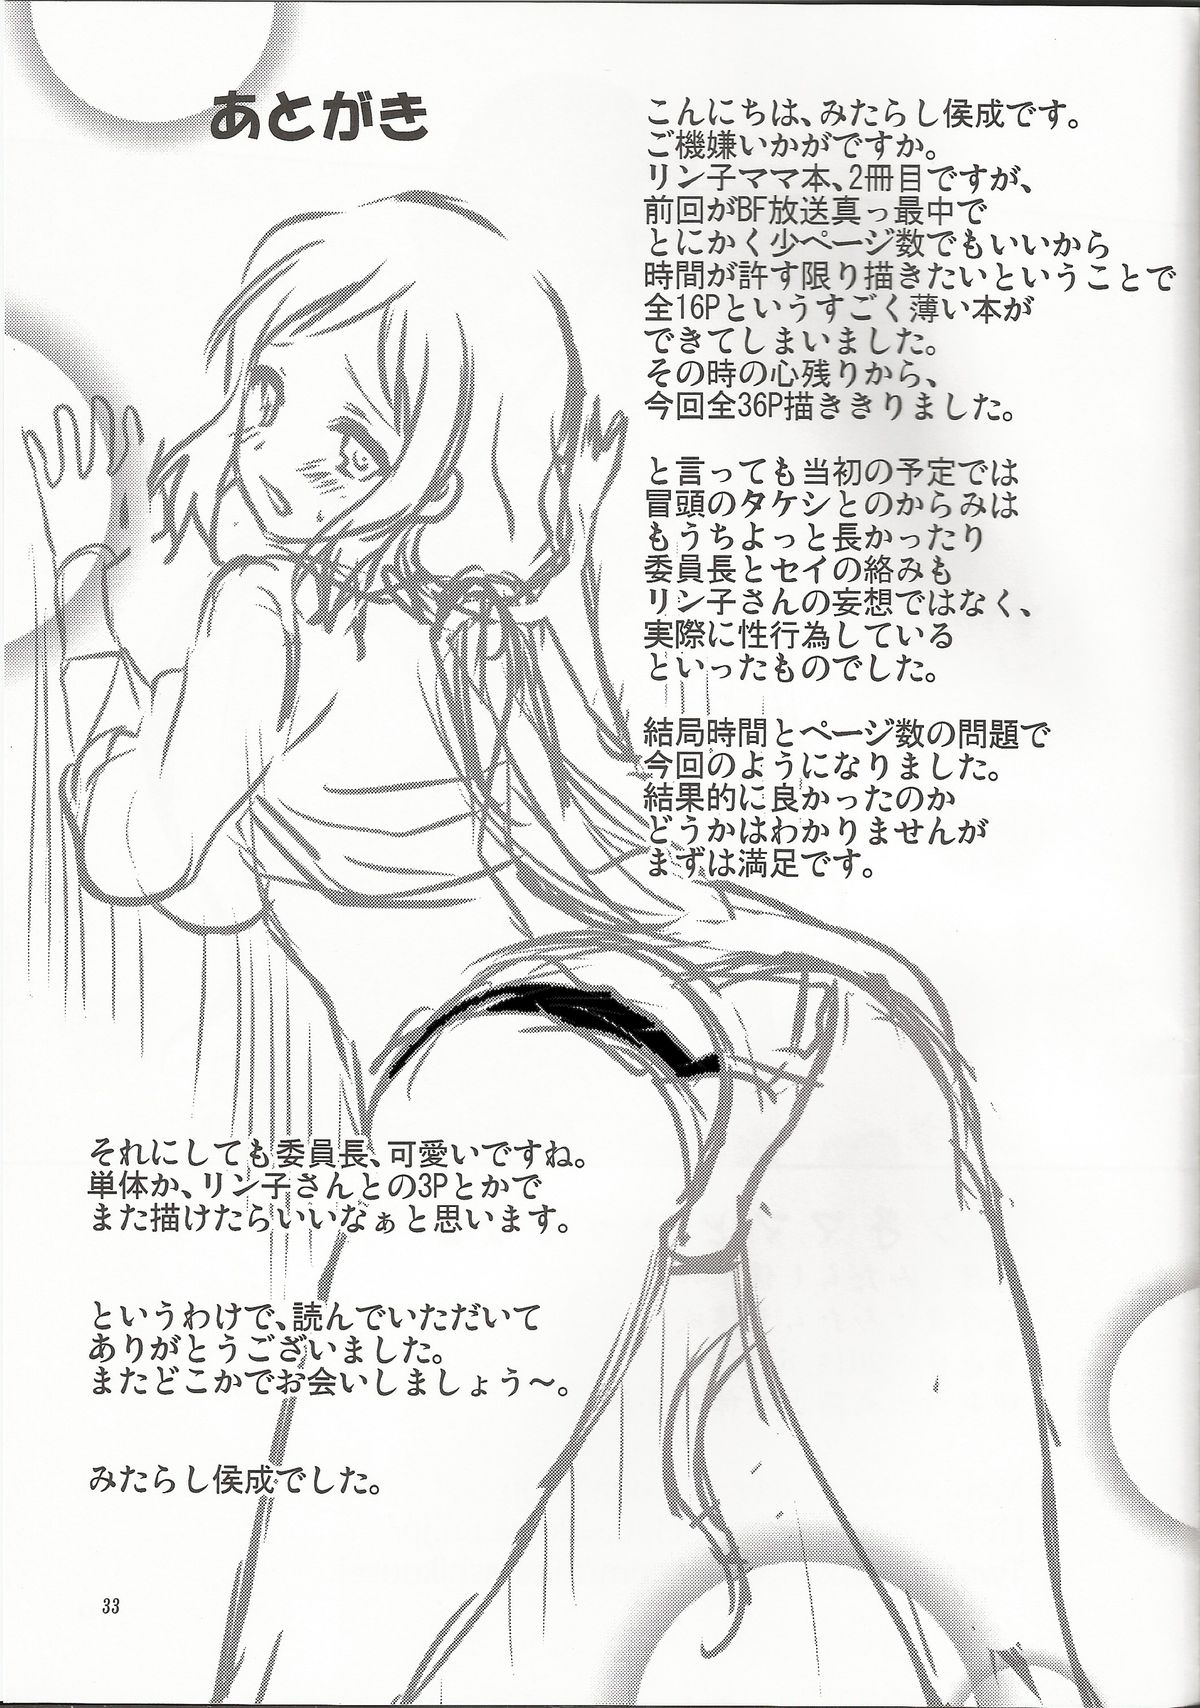 あとがき
こんにちは、みたらし侯成です。
ご機嫌いかがですか。
リン子ママ本、2冊目ですが、
前回がBF放送真っ最中で
とにかく少ページ数でもいいから
時間が許す限り描きたいということで
全16Pというすごく薄い本が
できてしまいました。
その時の心残りから、
今回全36P描ききりました。
と言っても当初の予定では
冒頭のタケシとのからみは
もうちょっと長かったり
委員長とセイの絡みも
リン子さんの妄想ではなく、
実際に性行為している
といったものでした。
結局時間とページ数の問題で
今回のようになりました。
結果的に良かったのか
どうかはわかりませんが
まずは満足です。
それにしても委員長、可愛いですね。
単体か、リン子さんとの3Pとかで
また描けたらいいなぁと思います。
というわけで、読んでいただいて
ありがとうございました。
またどこかでお会いしましょう～。
みたらし侯成でした。
33